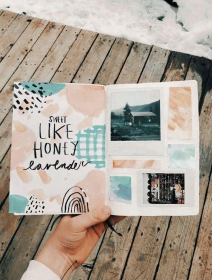 SWEET
LIKE
HONEY
lavender